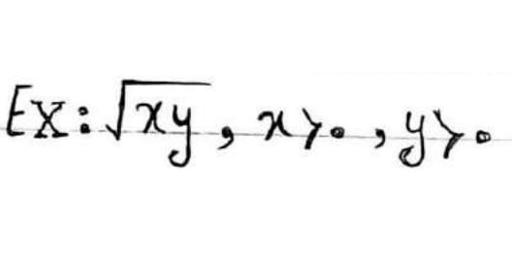 Ex: √xy, x>0, y>0